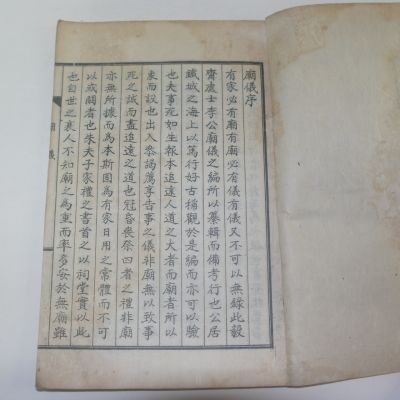 廟儀序
有家必有廟有廟必有儀有儀又不可以無錄此毅
齋處士李公廟儀之編所以纂輯而備考行也公居
鐵城之海上以篤行好古稱觀於是編而亦可以驗
也夫事死如生報本追遠人道之大者而廟者所以
東而設也出入參謁薦享告事之儀非廟無以致事
死之誠而盡追遠之道也冠昏喪祭四者之禮非廟
亦無所據而爲本斯固爲有家日用之常體而不可
以或闕者也朱夫子家禮之書首之以祠堂實以此
也自世之衰人不知廟之爲重而率多安於無廟雖
廟儀